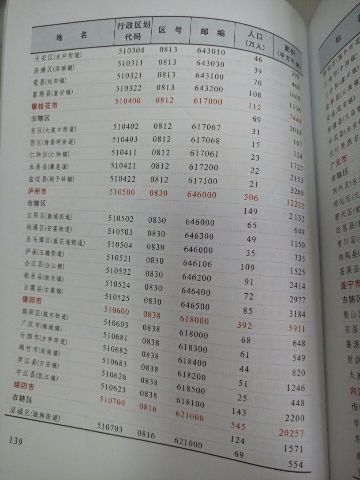 地 名 行政区划代码 区号 邮编 人口(万人) 面积(平方千米)
大安区 510304 0813 643010 46
沿滩区(沿滩镇) 510311 0813 643030 39
荣县(旭阳镇) 510321 0813 643100 70
富顺县(富世镇) 510322 0813 643200 108
攀枝花市 510400 0812 617000 112 7440
市辖区
东区(大渡口街道) 510402 0812 617067 31
西区(清香坪街道) 510403 0812 617068 15 124
仁和区(仁和镇) 510411 0812 617061 23 1727
米易县(攀莲镇) 510421 0812 617200 22 2153
盐边县(桐子林镇) 510422 0812 617100 21 3269
泸州市 510500 0830 646000 506 12232
市辖区 149 2132
江阳区(南城街道) 510502 0830 646000 65 649
纳溪区(安富街道) 510503 0830 646300 49 1150
龙马潭区(莲花池街道) 510504 0830 646000 35 333
泸县(玉蟾街道) 510521 0830 646106 109 1525
合江县(合江镇) 510522 0830 646200 91 2414
叙永县(叙永镇) 510524 0830 646400 72 2977
古蔺县(古蔺镇) 510525 0830 646500 85 3184
德阳市 510600 0838 618000 392 5911
旌阳区 510603 0838 618000 68 648
广汉市(雒城镇) 510681 0838 618300 61 549
什邡市(方亭街道) 510682 0838 618400 44 820
绵竹市(剑南镇) 510683 0838 618200 51 1246
罗江县(万安镇) 510626 0838 618500 25 448
中江县(凯江镇) 510623 0838 618100 143 2200
绵阳市 510700 0816 621000 545 20257
市辖区 124 1571
涪城区(城厢街道) 510703 0816 621000 69 554
139